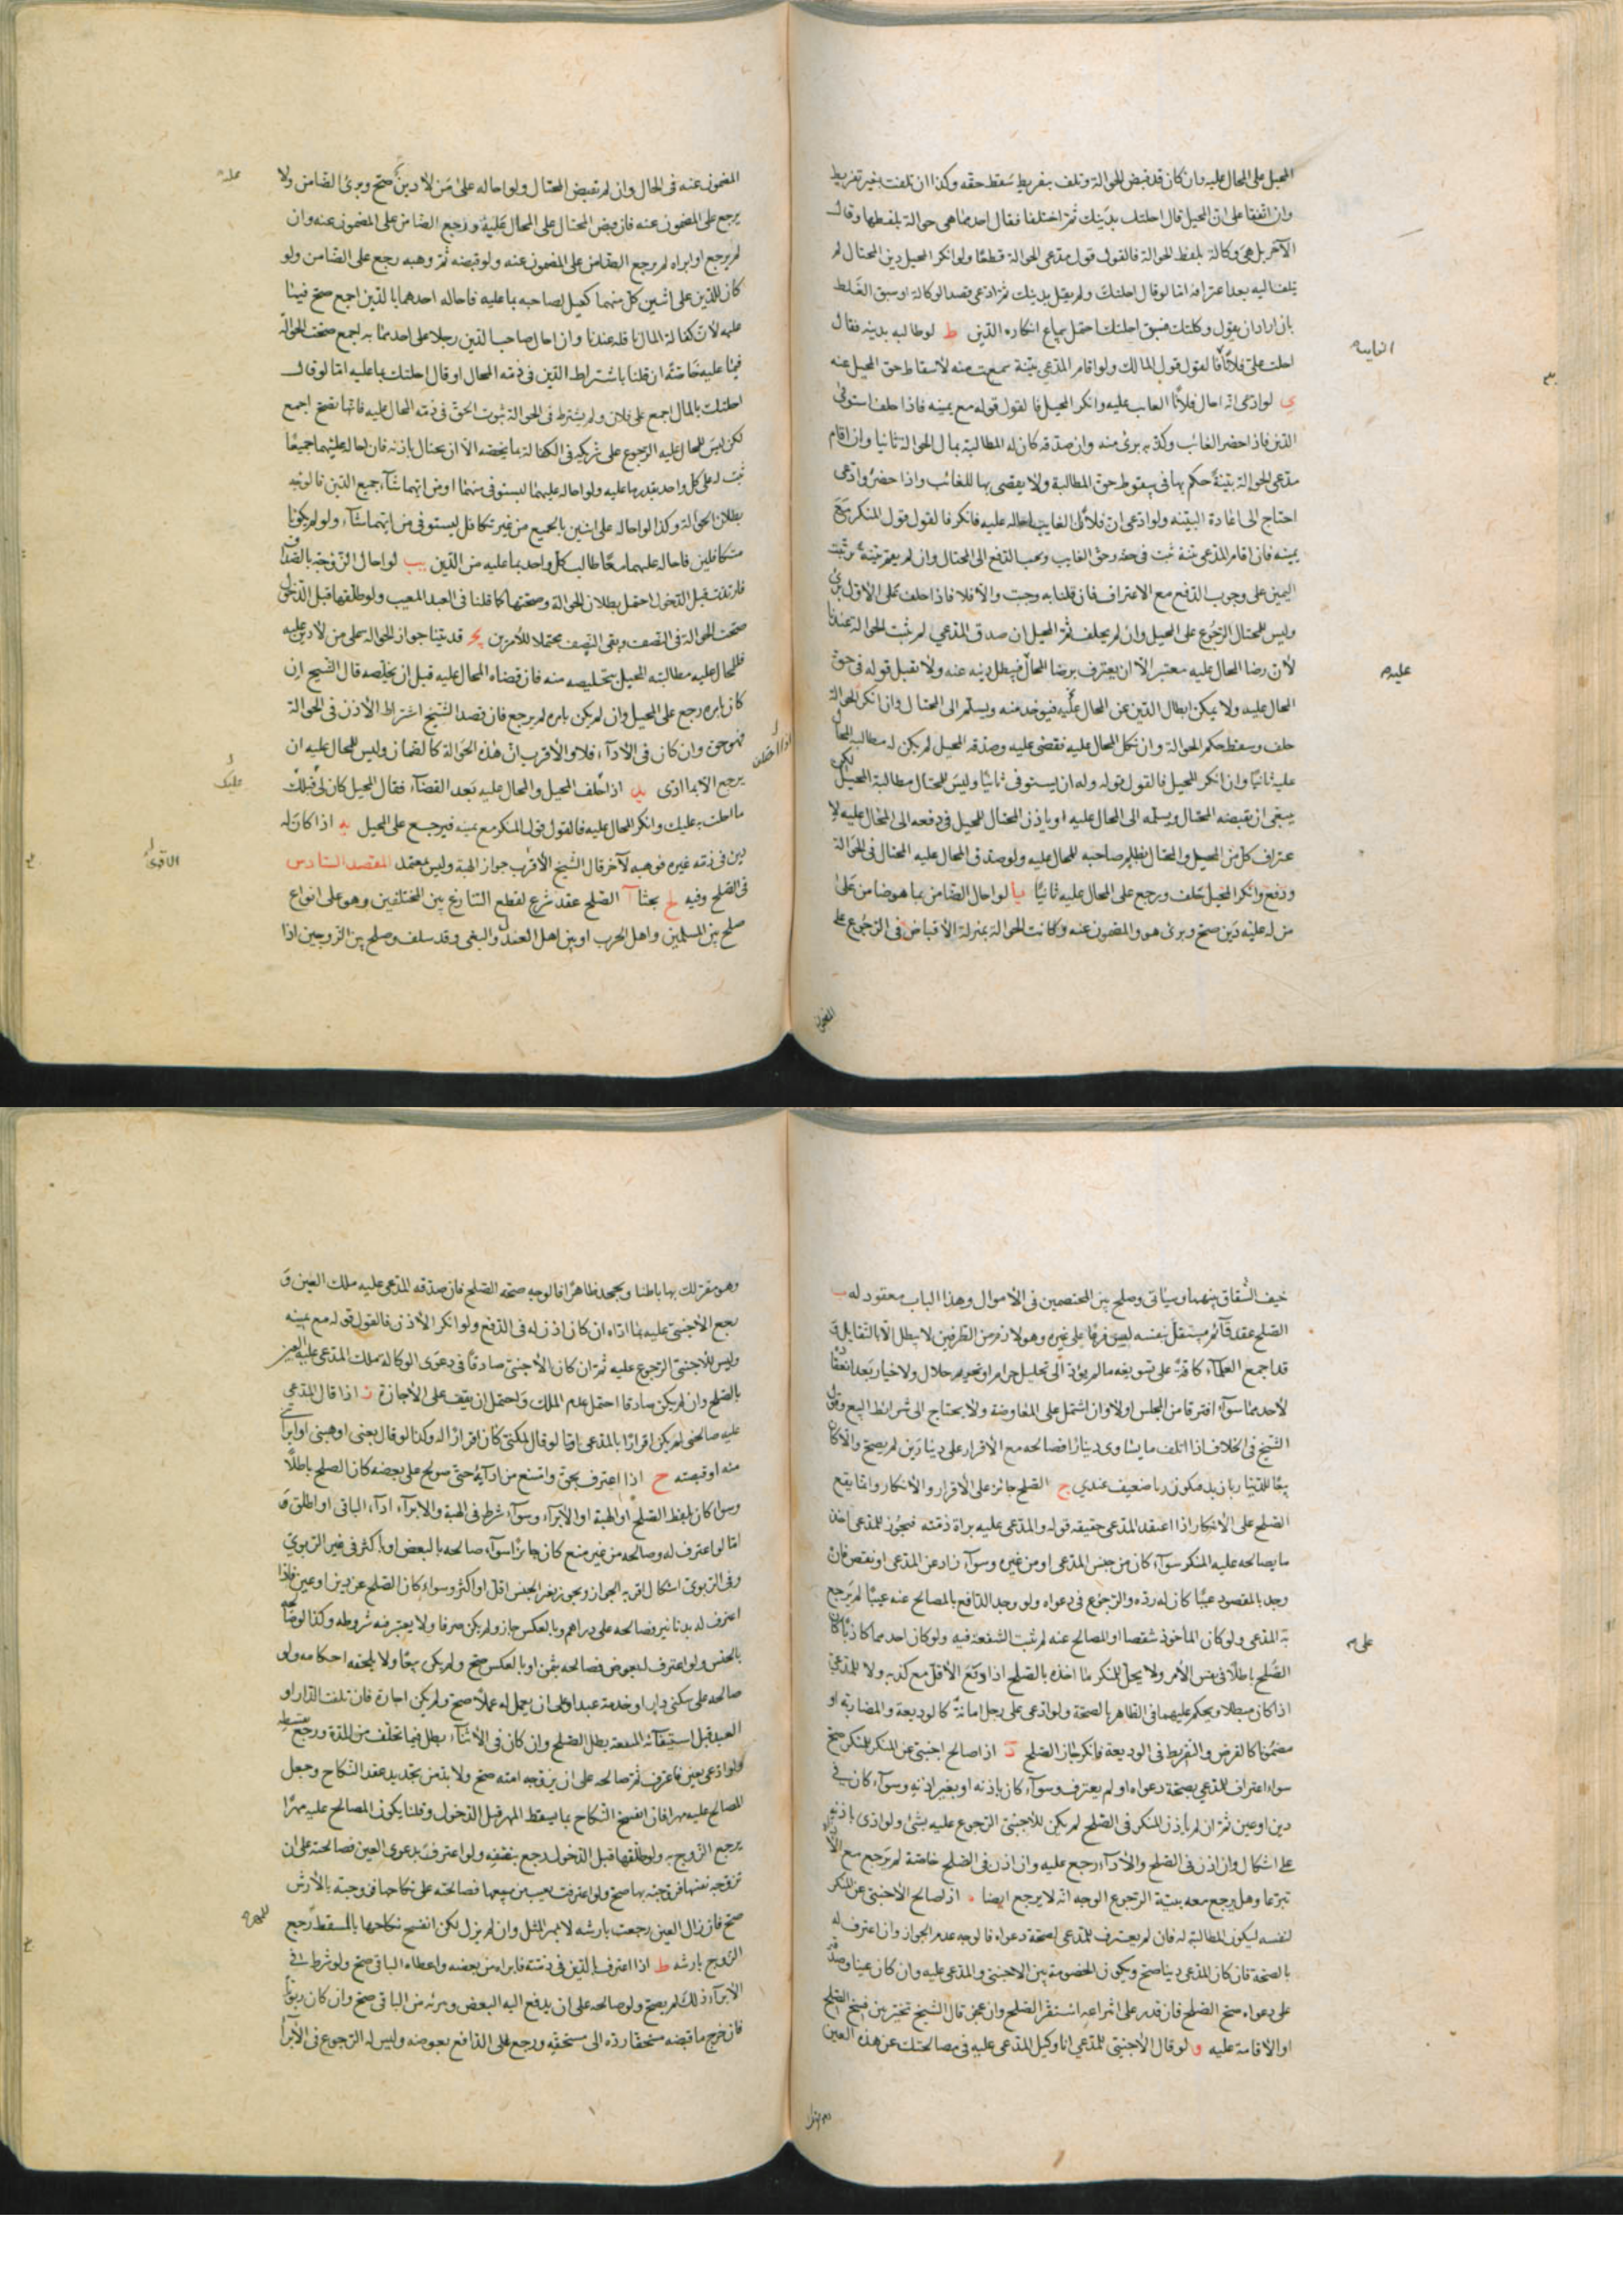 المحيل على المحال عليه وان كان قد قبض الحوالة وتلف بتفريط سقط حقه وكذا ان تلفت بغير تفريط
وان اتفقا على ان المحيل قال احلتك بدينك ثم اختلفا فقال احدهما هى حوالة بلفظها وقال
الآخر بل هى وكالة بلفظ الحوالة فالقول قول مدعى الحوالة قطعًا ولو انكر المحيل دين المحتال لم
يلتفت اليه بعد اعترافه اما لو قال احلتك ولم يقل بدينك ثم ادعى قصد الوكالة او سبق الغلط
بان اراد ان يقول وكلتك فسبق احلتك احتمل سماع انكاره الدين ط لو طالبه بدينه فقال
احلت على فلانًا فالقول قول المالك ولو اقام المدعى بينة سمعت منه لاسقاط حق المحيل عنه
ى لو ادعى انه احال فلانًا الغايب عليه وانكر المحيل فالقول قوله مع يمينه فاذا حلف استوفى
الدين فاذا حضر الغائب وكذبه برئ منه وان صدقه كان له المطالبة بمال الحوالة ثانيا وان اقام
مدعى الحوالة بينةً حكم بها فى سقوط حق المطالبة ولا يقضى بها للغائب واذا حضر وادعى
احتاج الى اعادة البينه ولو ادعى ان فلانًا الغايب احاله عليه فانكر فالقول قول المنكر مع
يمينه فان اقام المدعى بينة ثبت فى حقه وحق الغايب ويجب الدفع الى المحتال وان لم يقم بينةً ترتبت
اليمين على وجوب الدفع مع الاعتراف فان قلنا به وجبت والا فلا فاذا حلف على الاول برئ
وليس للمحتال الرجوع على المحيل وان لم يحلف ثم المحيل ان صدق المدعي لم تثبت الحوالة عندنا
لان رضا المحال عليه معتبر الا ان يعترف برضا المحال فيبطل دينه عنه ولا نقبل قوله فى حق
المحال عليه ولا يمكن ابطال الدين عن المحال عليه فيوخذ منه ويسلم الى المحتال وان انكر الحوالة
حلف وسقط حكم الحوالة وان نكل المحال عليه فقضى عليه وصدقه المحيل لم يكن له مطالبة المحال
عليه ثانيًا وان انكر المحيل فالقول قوله وله ان يستوفى ثانيًا وليس للمحتال مطالبة المحيل لكن
ينبغى ان يقبضه المحتال ويسلمه الى المحال عليه او ياذن المحتال للمحيل فى دفعه الى المحال عليه لا
عتراف كل من المحيل والمحتال بظلم صاحبه للمحال عليه ولو صدق المحال عليه المحتال فى الحوالة
ودفع وانكر المحيل حلف ورجع على المحال عليه ثانيًا يا لو احال الضامن بما هو ضامن على
من له عليه دين صح وبرئ هو والمضمون عنه وكانت الحوالة بمنزلة الاقباض فى الرجوع على
الغايب
عليه
المضمون
المضمون عنه فى الحال وان لم يقبض المحتال ولو احاله على من لا دين صح وبرئ الضامن ولا
يرجع على المضمون عنه فان قبض المحتال على المحال عليه ورجع الضامن على المضمون عنه وان
لم يرجع او ابراه لم يرجع الضامن على المضمون عنه ولو قبضه ثم وهبه رجع على الضامن ولو
كان للدين على اثنين كل منهما كفيل لصاحبه بما عليه فاحاله احدهما بالدين اجمع صح فيما
عليه لان كفالة المال ناقلة عندنا وان احال صاحب الدين رجلا على احدهما به اجمع صحت الحوالة
فيما عليه خاصة ان قلنا باشتراط الدين فى ذمه المحال او قال احلتك بما عليه اما لو قال
احلتك بالمال اجمع على فلان ولم يشترط فى الحوالة ثبوت الحق فى ذمه المحال عليه فانها تصح اجمع
لكن ليس للمحال عليه الرجوع على شريكه فى الكفالة بما يخصه الا ان يحتال باذنه فان احاله عليهما جميعًا
ثبت له على كل واحد بقدر ما عليه ولو احاله عليهما ليستوفى منهما او من ايهما شاء جميع الدين فالوجه
بطلان الحوالة وكذا لو احاله على اثنين بالجميع من غير تكافل ليستوفى من ايهما شاء ولو لم يكونا
متكافلين فاحاله عليهما معًا طالب كل واحد بما عليه من الدين يب لو احال الزوجة بالصداق
فارتدت قبل الدخول احتمل بطلان الحوالة وصحتها كما قلنا فى العبد المعيب ولو طلقها قبل الدخول
صحت الحوالة فى النصف وبقى النصف محتملا للامرين يج قد بينا جواز الحواله على من لا دين عليه
فللمحال عليه مطالبته المحيل بتخليصه منه فان قضاه المحال عليه قبل ان يخلصه قال الشيخ ان
كان بامره رجع على المحيل وان لم يكن بامره لم يرجع فان قصد الشيخ اشتراط الاذن فى الحوالة
فهو حق وان كان فى الادآء فلا والاقرب ان هذه الحوالة كالضمان وليس للمحال عليه ان
يرجع الا بما ادى يد اذا اختلف المحيل والمحال عليه بعد القضآء فقال المحيل كان لى قبلك
ما احلت به عليك وانكر المحال عليه فالقول قول المنكر مع يمينه فيرجع على المحيل يه اذا كان له
دين فى ذمه غيره فوهبه لآخر قال الشيخ الاقرب جواز الهبة وليس بمعتمد المقصد السادس
فى الصلح وفيه لح بحثا آ الصلح عقد شرع لقطع التنازع بين المختلفين وهو على انواع
صلح بين المسلمين واهل الحرب او بين اهل العدل والبغى وقد سلف وصلح بين الزوجين اذا
عليك
الاقوى
خيف الشقاق بينهما وسيأتى وصلح بين المختصمين فى الاموال وهذا الباب معقود له ب
الصلح عقد قآئم مستقل بنفسه ليس فرعًا على غيره وهو لازم من الطرفين لا يبطل الا بالتقايل و
قد اجمع العلمآء كافة على تسويغه ما لم يؤد الى تحليل حرام او تحريم حلال ولا خيار بعد انعقاده
لاحدهما سوآء افترقا من المجلس اولا وان اشتمل على المعاوضة ولا يحتاج الى شرائط البيع وقول
الشيخ فى الخلاف اذا اتلف ما يساوى دينارًا فصالحه مع الاقرار على دينارين لم يصح والا كان
بيعًا للدينار بازيد فيكون ربا ضعيف عندي ج الصلح جائز على الاقرار والانكار وانما يقع
الصلح على الانكار اذا اعتقد المدعى حقيقه قوله والمدعى عليه براة ذمته فيجوز للمدعى اخذ
ما يصالحه عليه المنكر سوآء كان من جنس المدعى او من غيره وسوآء زاد عن المدعى او نقص فان
وجد بالمقصود عيبًا كان له رده والرجوع فى دعواه ولو وجد الدافع بالمصالح عنه عيبًا لم يرجع
به المدعى ولو كان الماخوذ شقصا او المصالح عنه لم تثبت الشفعة فيه ولو كان احدهما كاذبًا كان
الصلح باطلًا فى نفس الامر ولا يحل للمنكر ما اخذه بالصلح اذا وقع الاقل مع كذبه ولا للمدعي
اذا كان مبطلا ويحكم عليهما فى الظاهر بالصحة ولو ادعى على رجل امانةً كالوديعة والمضاربة او
مضمونا كالقرض والتفريط فى الوديعة فانكر جاز الصلح د اذا صالح اجنبى عن المنكر للمنكر صح
سواء اعترف للمدعي بصحة دعواه او لم يعترف وسوآء كان باذنه او بغير اذنه وسوآء كان فى
دين او عين ثم ان لم ياذن المنكر فى الصلح لم يكن للاجنبى الرجوع عليه بشئ ولو ادى باذنه
على اشكال وان اذن فى الصلح والادآء رجع عليه وان اذن فى الصلح خاصة لم يرجع مع الاداء
تبرعا وهل يرجع معه بنية الرجوع الوجه انه لا يرجع ايضا ه اذا صالح الاجنبى عن المنكر
لنفسه ليكون المطالبة له فان لم يعترف للمدعي بصحة دعواه فالوجه عدم الجواز وان اعترف له
بالصحة فان كان المدعى دينا صح ويكون الخصومة بين الاجنبى والمدعى عليه وان كان عينا وصدقه
على دعواه صح الصلح فان قدر على انتزاعه استقر الصلح وان عجز قال الشيخ تخير بين فسخ الصلح
او الاقامة عليه و لو قال الاجنبى للمدعي انا وكيل المدعى عليه فى مصالحتك عن هذه العين
على
وهو مقر لك بها باطنا ويجحد ظاهرًا فالوجه صحة الصلح فان صدقه المدعى عليه ملك العين و
رجع الاجنبى عليه بما اداه ان كان اذن له فى الدفع ولو انكر الاذن فالقول قوله مع يمينه
وليس للاجنبى الرجوع عليه ثم ان كان الاجنبى صادقًا فى دعوى الوكالة ملك المدعى عليه العين
بالصلح وان لم يكن صادقا احتمل عدم الملك واحتمل ان يقف على الاجازة ز اذا قال المدعى
عليه صالحنى لم يكن اقرارًا بالمدعى اما لو قال ملكنى كان اقرارًا له وكذا لو قال بعنى او هبنى او ابرأ
منه او قبضته ح اذا اعترف بحق وامتنع من ادآئه حتى صولح على بعضه كان الصلح باطلًا
وسوا كان بلفظ الصلح او الهبة او الابرآء وسوآء شرط فى الهبة والابرآء ادآء الباقى او اطلق و
اما لو اعترف له وصالحه من غير منع كان جائزًا سوآء صالحه بالبعض او باكثر فى غير الربوي
وفى الربوى اشكال اقربه الجواز ويجوز بغير الجنس اقل او اكثر وسواء كان الصلح عن دين او عين فاذا
اعترف له بدنانير فصالحه على دراهم وبالعكس جاز ولم يكن صرفا ولا يعتبر فيه شروطه وكذا لو صالحه
بالجنس ولو اعترف له بعوض فصالحه بثمن او بالعكس صح ولم يكن بيعًا ولا يلحقه احكامه ولو
صالحه على سكنى دار او خدمة عبد او على ان يعمل له عملًا صح ولم يكن اجارة فان تلفت الدار او
العبد قبل استيفآء المنفعة بطل الصلح وان كان فى الاثنآء بطل فيما تخلف من المدة ورجع بقسطه
ولو ادعى بعين فاعترف ثم صالحه على ان يزوجه امته صح ولا بد من تجديد عقد النكاح وجعل
المصالح عليه مهرا فان انفسخ النكاح بما يسقط المهر قبل الدخول وقلنا يكون المصالح عليه مهرًا
يرجع الزوج به ولو طلقها قبل الدخول رجع بنصفه ولو اعترفت بدعوى العين فصالحته على ان
تزوجه نفسها فزوجته بها صح ولو اعترفت بعيب من مبيعها فصالحته على نكاحها فزوجته بالارش
صح فان زال العيب رجعت بارشه لا بمهر المثل وان لم يزل لكن انفسخ نكاحها بالمسقط رجع
الزوج بارشه ط اذا اعترف بالدين فى ذمته فابراه من بعضه واعطاه الباقى صح ولو شرط فى
الابرآء ذلك لم يصح ولو صالحه على ان يدفع اليه البعض ويبرئه من الباقى صح وان كان ربويًا
فان خرج ما قبضه مستحقا رده الى مستحقه ورجع على الدافع بعوضه وليس له الرجوع فى الابرآء
للمهر